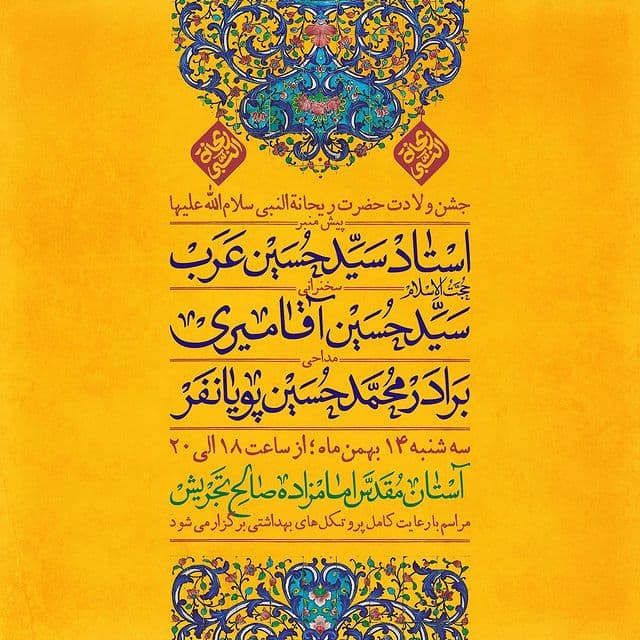 ریحانة النبی
ریحانة النبی
جشن ولادت حضرت ریحانة النبی سلام الله علیها
پیش منبر
استاد سیّد حُسَین عَرَب
سخنرانی
حُجَّتُ الاِسلام
سَیِّد حُسَین آقامیری
مداحی
برادر مُحَمَّد حُسَین پویانفَر
سه شنبه ۱۴ بهمن ماه؛ از ساعت ۱۸ الی ۲۰
آستان مُقدّس امامزاده صالح تجریش
مراسم با رعایت کامل پروتکل‌های بهداشتی برگزار می شود